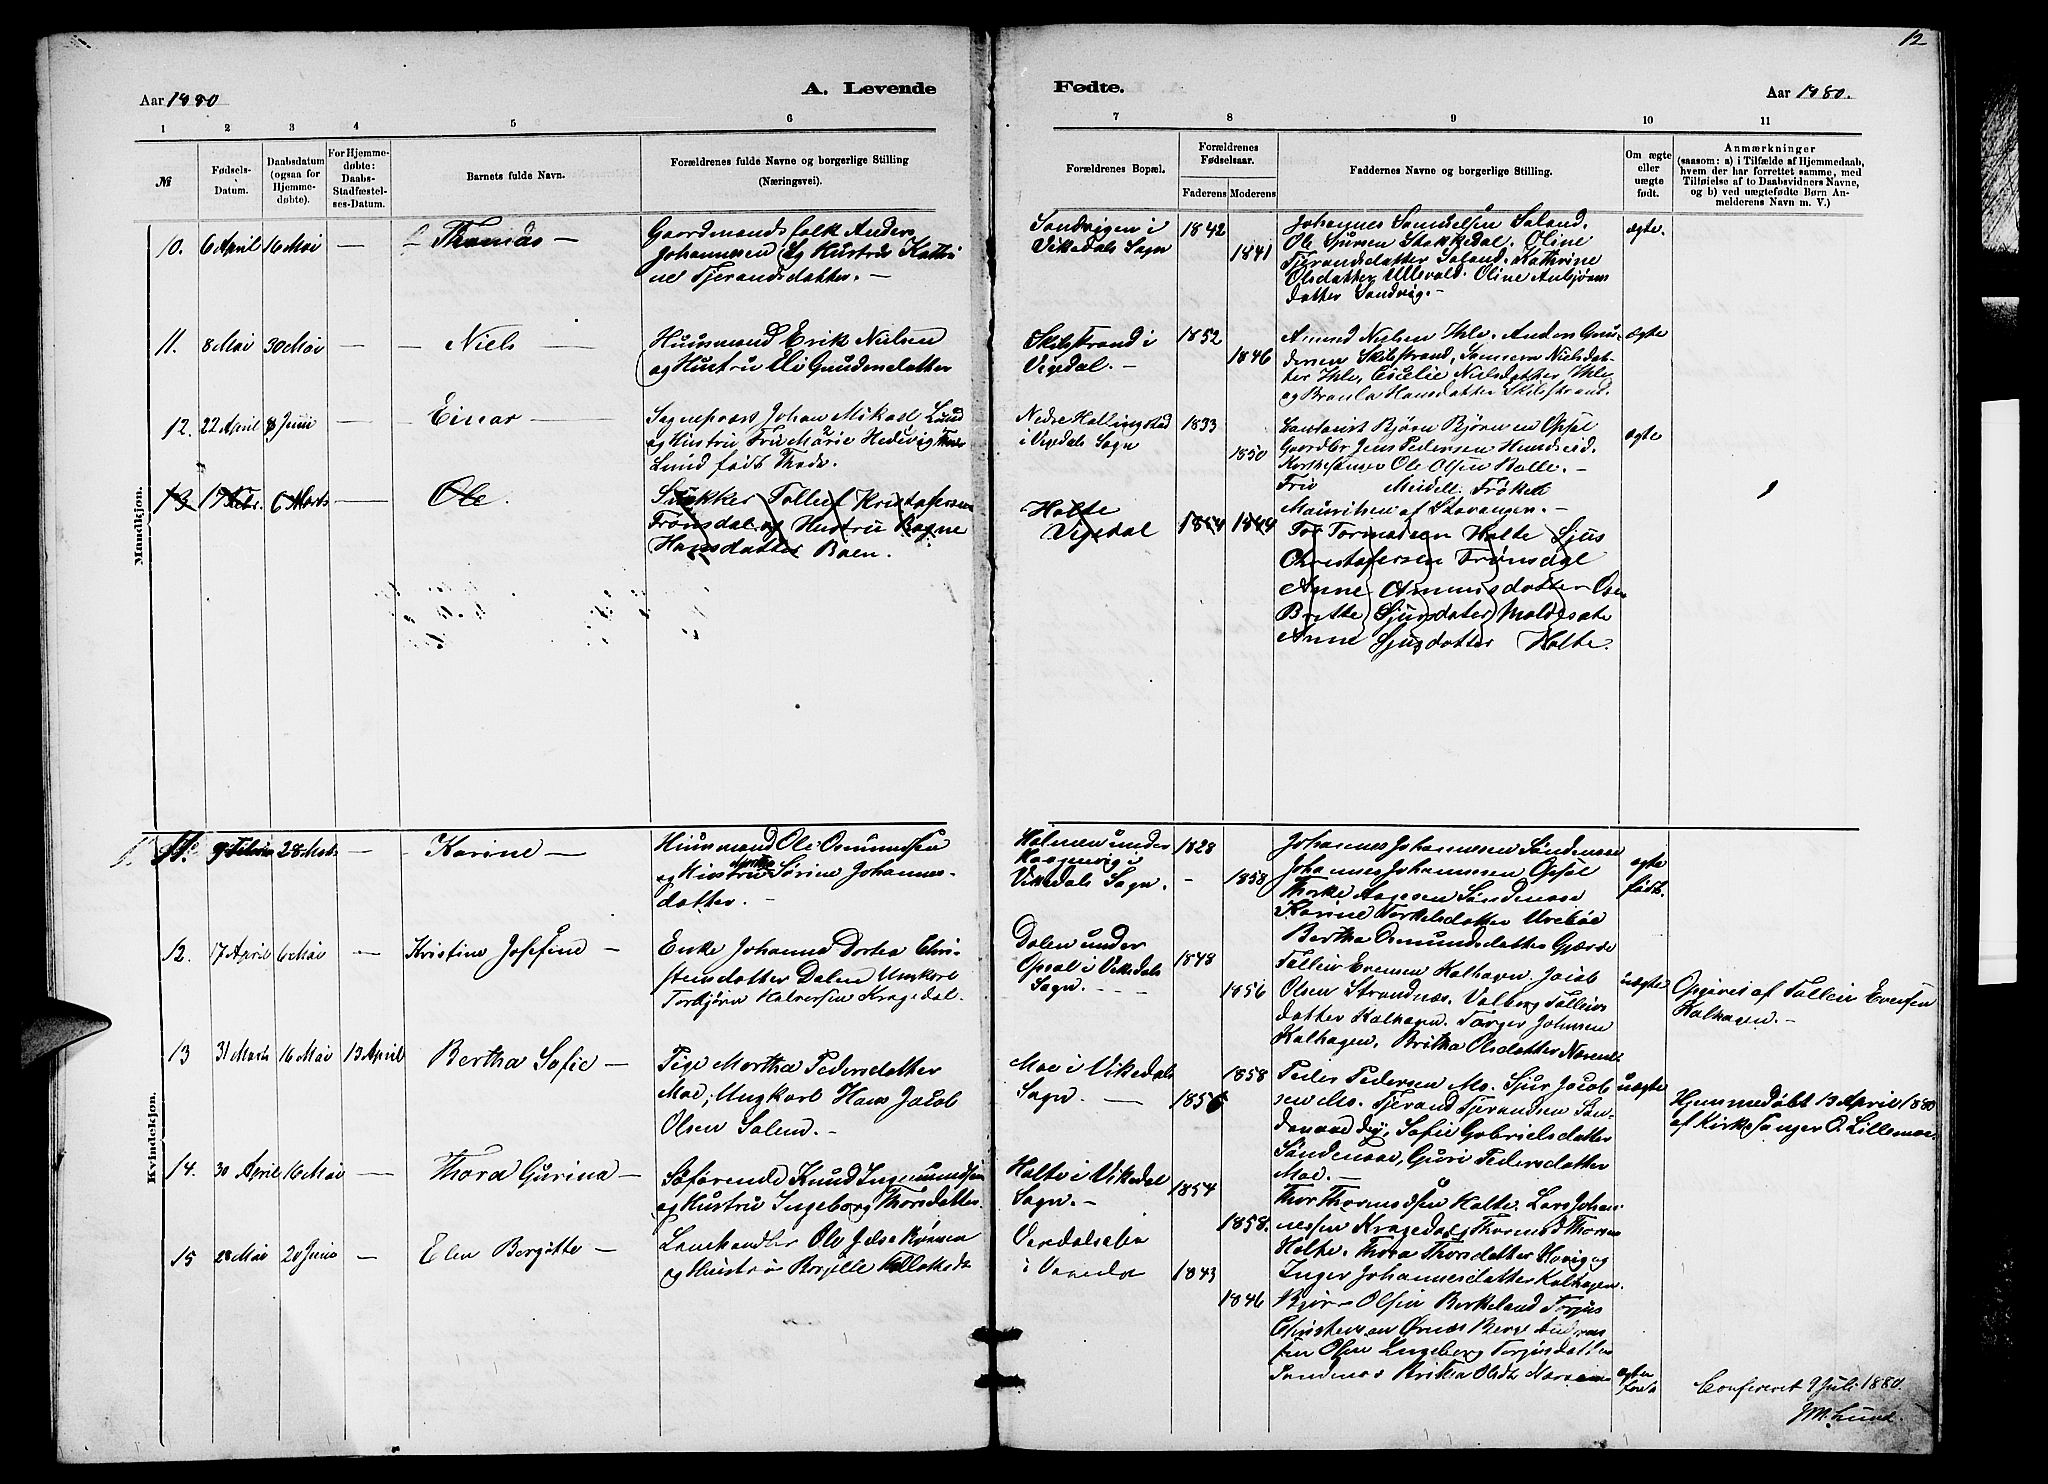 12
Aar 1880
A. Levende
Fødte.
Aar 1880.
1 2 3 4 5 6 7 8 9 10 11
№
Fødsels-Datum.
Daabsdatum (ogsaa for Hjemmedøbte).
For Hjemmedøbte: Daabs-Stadfæstelses-Datum.
Barnets fulde Navn.
Forældrenes fulde Navne og borgerlige Stilling (Næringsvei).
Forældrenes Bopæl.
Forældrenes Fødselsaar.
Faderens Moderens
Faddernes Navne og borgerlige Stilling.
Om ægte eller uægte født.
Anmærkninger
(saasom: a) i Tilfælde af Hjemmedaab, hvem der har forrettet samme, med Tilføielse af to Daabsvidners Navne, og b) ved uægtefødte Børn Anmelderens Navn m. V.)
Mandkjøn.
10. 6 April 16 Mai — Thomas —
Gaardmandsfolk Anders
Johannesen og Hustru Kathri
ne Tjerandsdatter. —
Sandvigen i
Vikedals Sogn
1842
1841
Johannes Samuelsen Saland.
Ole Sjursen Stakkedal. Oline
Tjerandsdatter Saland. Kathrine
Olsdatter Ullsvald. Oline Anbjørns
datter Sandvig. —
ægte.
11. 8 Mai 30 Mai — Niels —
Huusmand Erik Nielsen
og Hustru Eli Gundersdatter
Skibstrand i
Vigedal. —
1852
1846
Amund Nielsen Ihle. Anders Gun-
dersen Skibstrand,
ter Ihle, Cecelie Nielsdatter Ihle
og Hansdatter Skibstrand.
ægte
12. 22 April 8 Juni — Einar —
Sognepræst Johan Mikael Lund
og Hustru Fru Marie Hedevig
Lund født
Nedre Hallingstad
i Vigdals
Sogn
1833
1850
Bjørn Bjørnsen Opsal
Gaardbr Jens Pedersen
Kirkesanger Ole Olsen Halle. —
Fru Meidell. Frøken
Mauritzen af Stavanger. —
ægte
13 17 Febr. 6 Marts — Ole.
Tollef Kristofersen
Frønsdal og Hustru Bagne
Hansdatter Baen.
Halte
Vigedal
1854 1844
Tor Tormodsen Halte Sjus
Christofersen Frønsdal
Anne Ommunsdatter
Britte Sjursdater Moldesate
Anne Sjusdatter Halte.
Kvindekjøn.
11. 9 Febru 28 Marts — Karine —
Huusmand Ole Osmundsen
og Hustru Sørine Johannes-
datter. —
Holmen under
i
Vikedals Sogn.
1828
- 1858
Johannes Johannesen Søndenaae
Johannes Johannesen Opsal
Thorke Aagesen Søndenaae
Karine Torkelsdatter Urebøe
Bertha Osmundsdatter Gjerde
ægte
født.
12. 17 April 6 Mai — Kristine Josefine —
Enke Johanna Dortea Chri-
stensdatter Dalen Ungkarl
Torbjørn Halversen Kragedal.
Dalen under
Opsal i Vikedals
Sogn. - - -
1848
1856
Tolleiv Evensen Kalhagen. Jacob
Olsen Strandnæs. Valborg Tolleivs
datter Kalhagen. Torger Johnsen
Kalhagen. Britha Olsdatter
uægte
Opgivet af Tolleiv Evensen
Kalhagen. —
13 31 Marts 16 Mai 13 April Bertha Sofie —
Pige Martha Pedersdatter
Moe, Ungkarl Hans Jacob
Olsen Salem. —
Moe i Vikedals
Sogn. —
1858
1856
Peder Pedersen Mo. Sjur Jacob
sen Mo. Tjerand Tjerandsen Søn-
denaae Sofie Gabrielsdatter
Søndenaae, Guri Pedersdatter
Moe. —
uægte
Hjemmedøbt 13 April 1880
af Kirkesanger O. Lillemoe
14. 30 April 16 Mai — Thora Gurina —
Søfarende Knud Ingemundsen
og Hustru Ingeborg Thorsdatter.
Halte i Vikedal
Sogn. —
1854
1858.
Thor Thormodsen Halte. Lars Johan-
nessen Kragedal, Thormod Thorsen
Halte. Thora Thorsdatter Hovig og
Inger Johannesdatter Kalhagen.
15 28 Mai 20 Juni — Elen Bergitte —
Lanshandler Ole
og Hustru
i
1843
1846
Olsen Berkeland Torjus
Christensen Ørnæs Berge
Olsen Engeborg Torjusdatter
Sandenæs Britha Olsdtr
ægte
født
Confereret 9 Juli 1880.
JM. Lund.